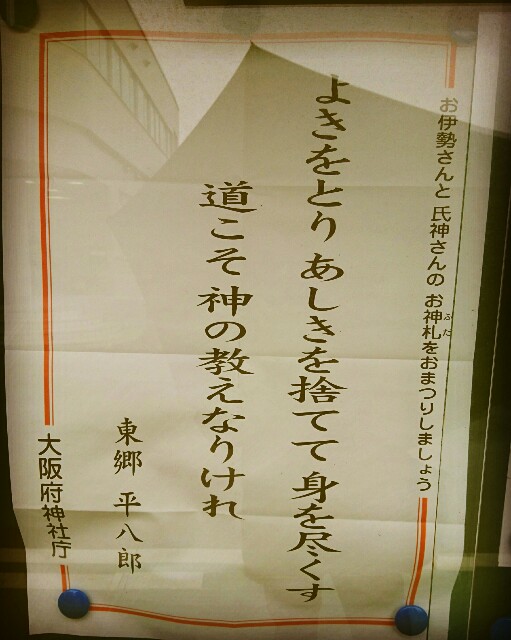 お伊勢さんと 氏神さんの お神札をおまつりしましょう
ふだ
よきをとり あしきを捨てて 身を尽くす
道こそ 神の教えなりけれ
東郷 平八郎
大阪府神社庁